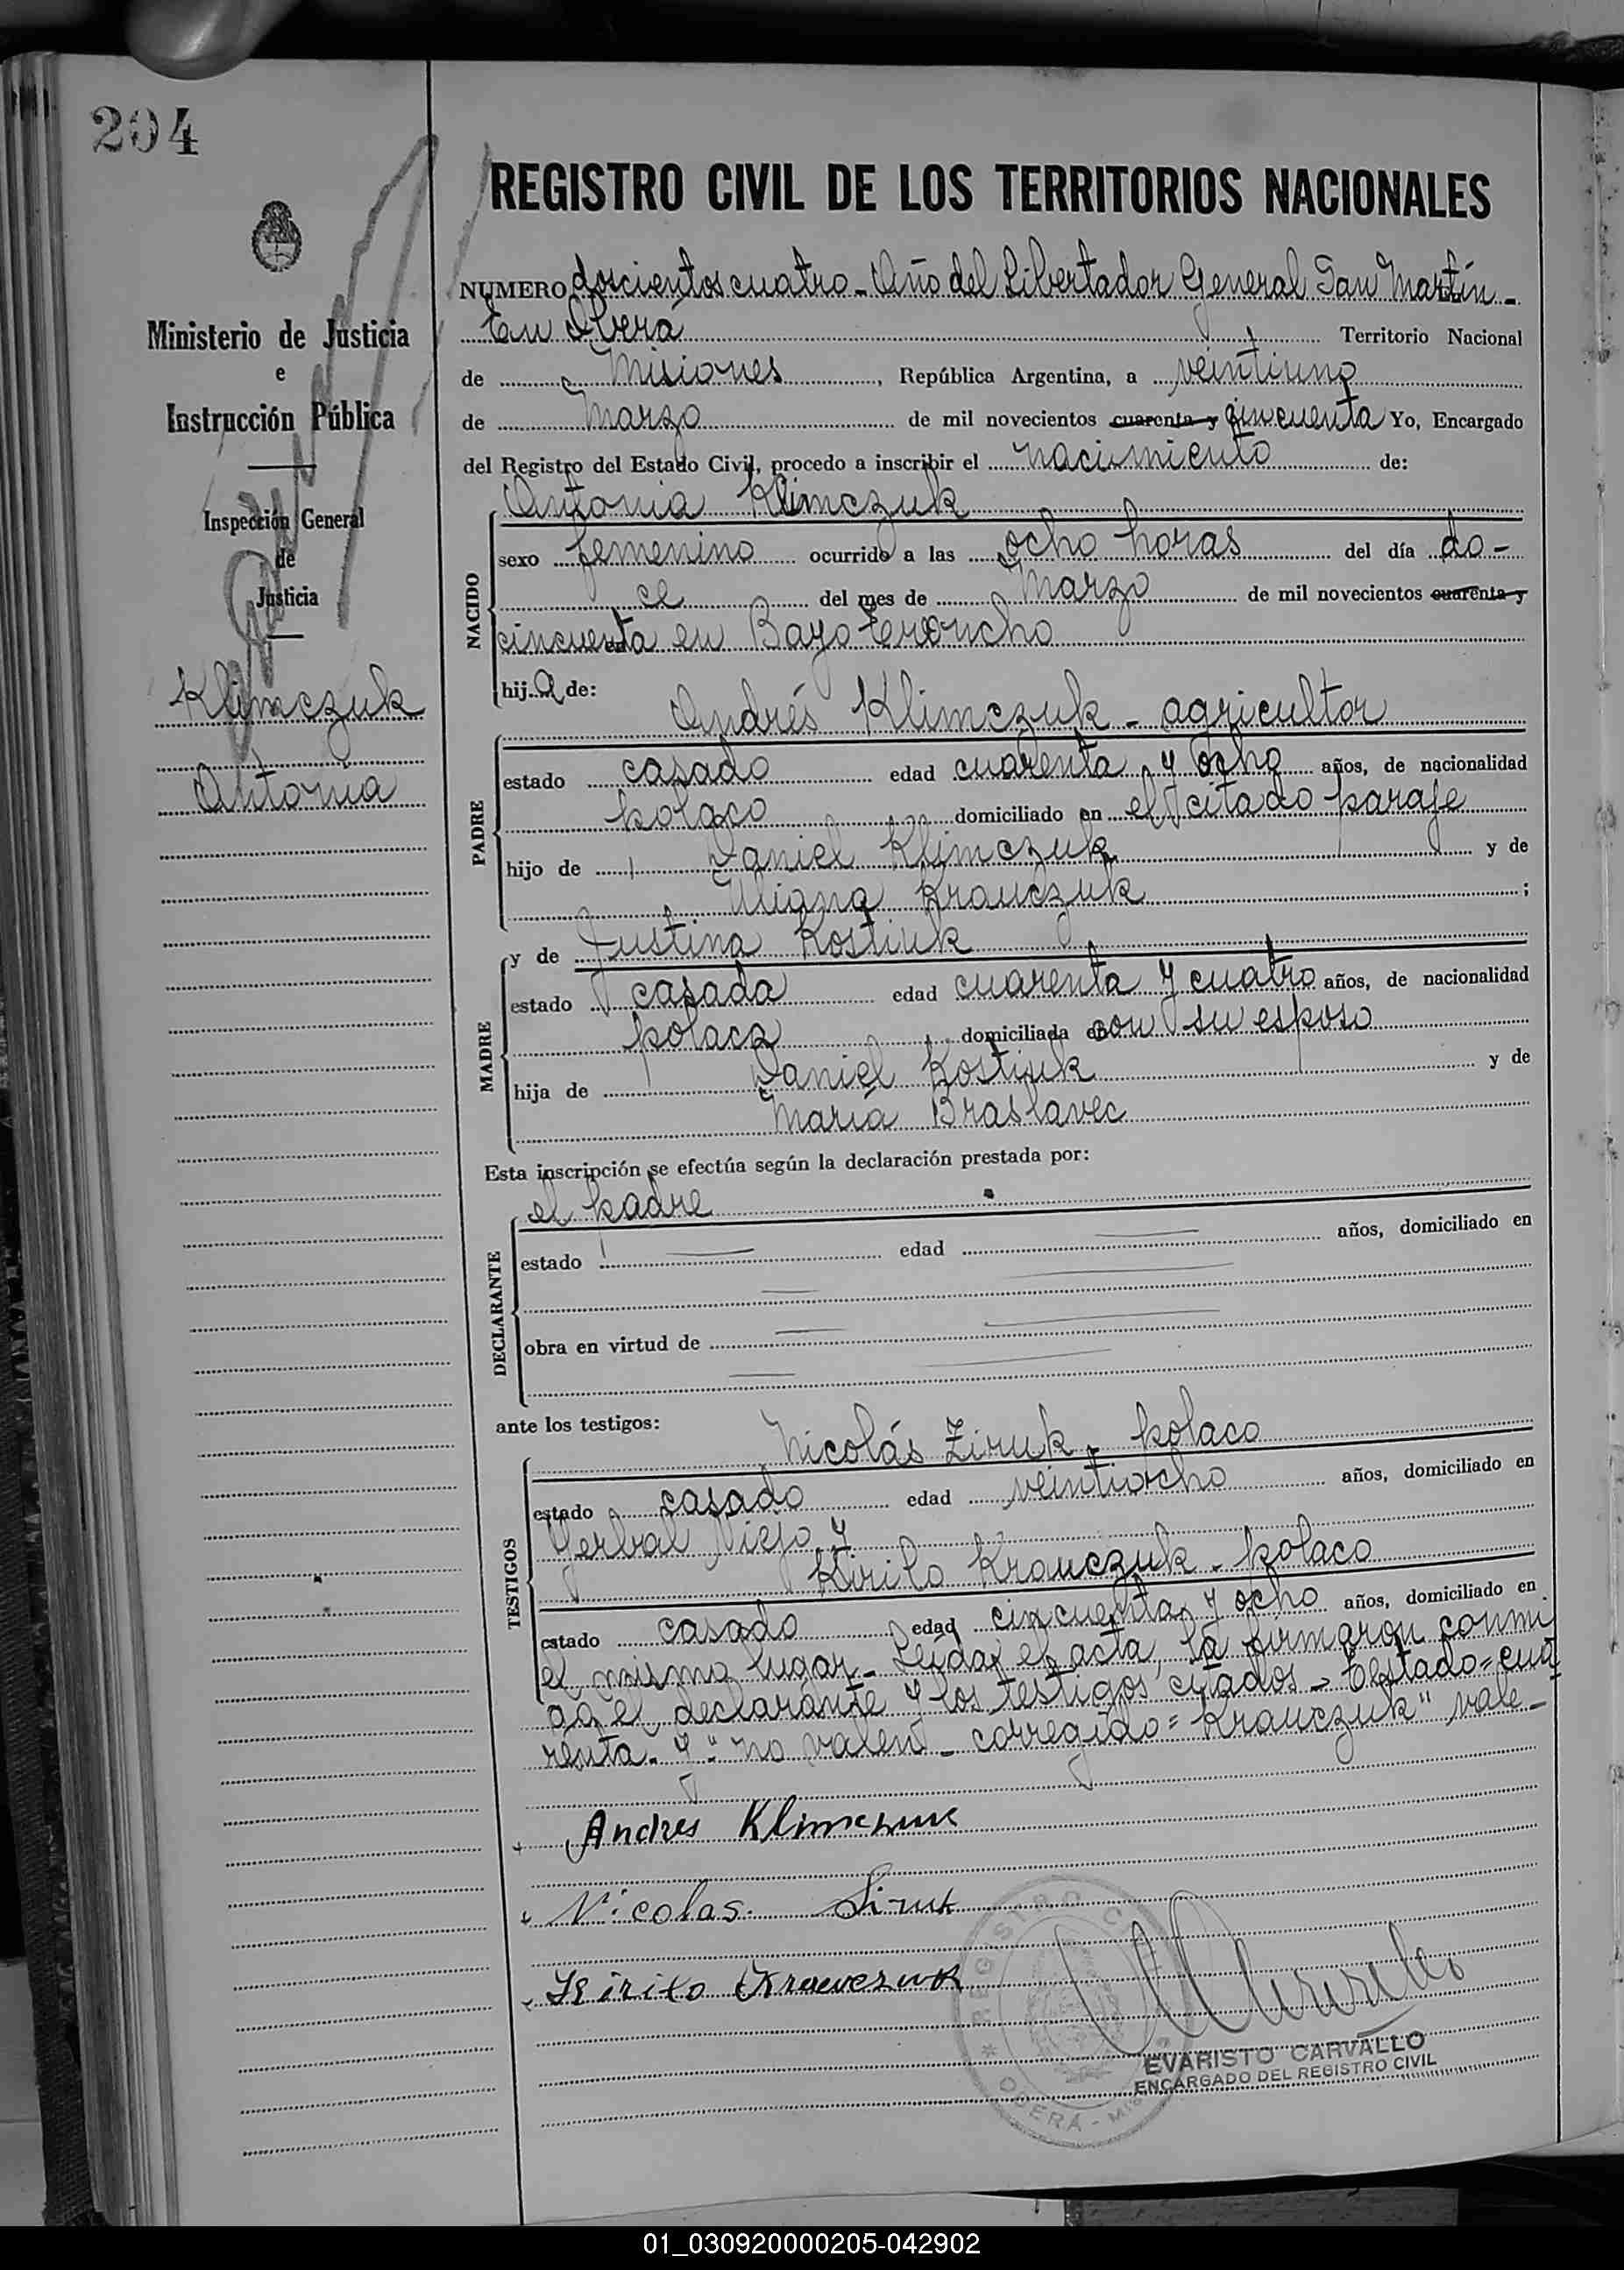 204
REGISTRO CIVIL DE LOS TERRITORIOS NACIONALES
Ministerio de Justicia
e
Instrucción Pública
Inspección General
de
Justicia
Klimczuk
Antonia
NUMERO doscientos cuatro - Año del Libertador General San Martín -
En Oberá Territorio Nacional
de Misiones, República Argentina, a veintiuno
de Marzo de mil novecientos cuarenta y cincuenta Yo, Encargado
del Registro del Estado Civil, procedo a inscribir el nacimiento de:
Antonia Klimczuk
NACIDO
sexo femenino ocurrido a las ocho horas del día do-
ce del mes de Marzo de mil novecientos cuarenta y
cincuenta en Bayo Troncho
hija de:
Andrés Klimczuk - agricultor
PADRE
estado casado edad cuarenta y ocho años, de nacionalidad
polaco domiciliado en el citado paraje
hijo de Daniel Klimczuk y de
Uliana Krauczuk ;
y de Justina Kostiuk
MADRE
estado casada edad cuarenta y cuatro años, de nacionalidad
polaca domiciliada en con su esposo
hija de Daniel Kostiuk y de
María Braslavec
Esta inscripción se efectúa según la declaración prestada por:
el padre
DECLARANTE
estado edad años, domiciliado en
obra en virtud de
ante los testigos:
Nicolás Ziruk - polaco
TESTIGOS
estado casado edad veintiocho años, domiciliado en
Yerbal Viejo y
Kirilo Krauczuk - polaco
estado casado edad cincuenta y ocho años, domiciliado en
el mismo lugar - Leída el acta, la firmaron conmi
go el declarante y los testigos citados - Testado = cua
renta - y " no valen - corregido = Krauczuk" vale -
Andres Klimczuk
Nicolas Siruk
Kirilo Krawczuk
REGISTRO C
OBERÁ - Mis
EVARISTO CARVALLO
ENCARGADO DEL REGISTRO CIVIL
01_030920000205-042902